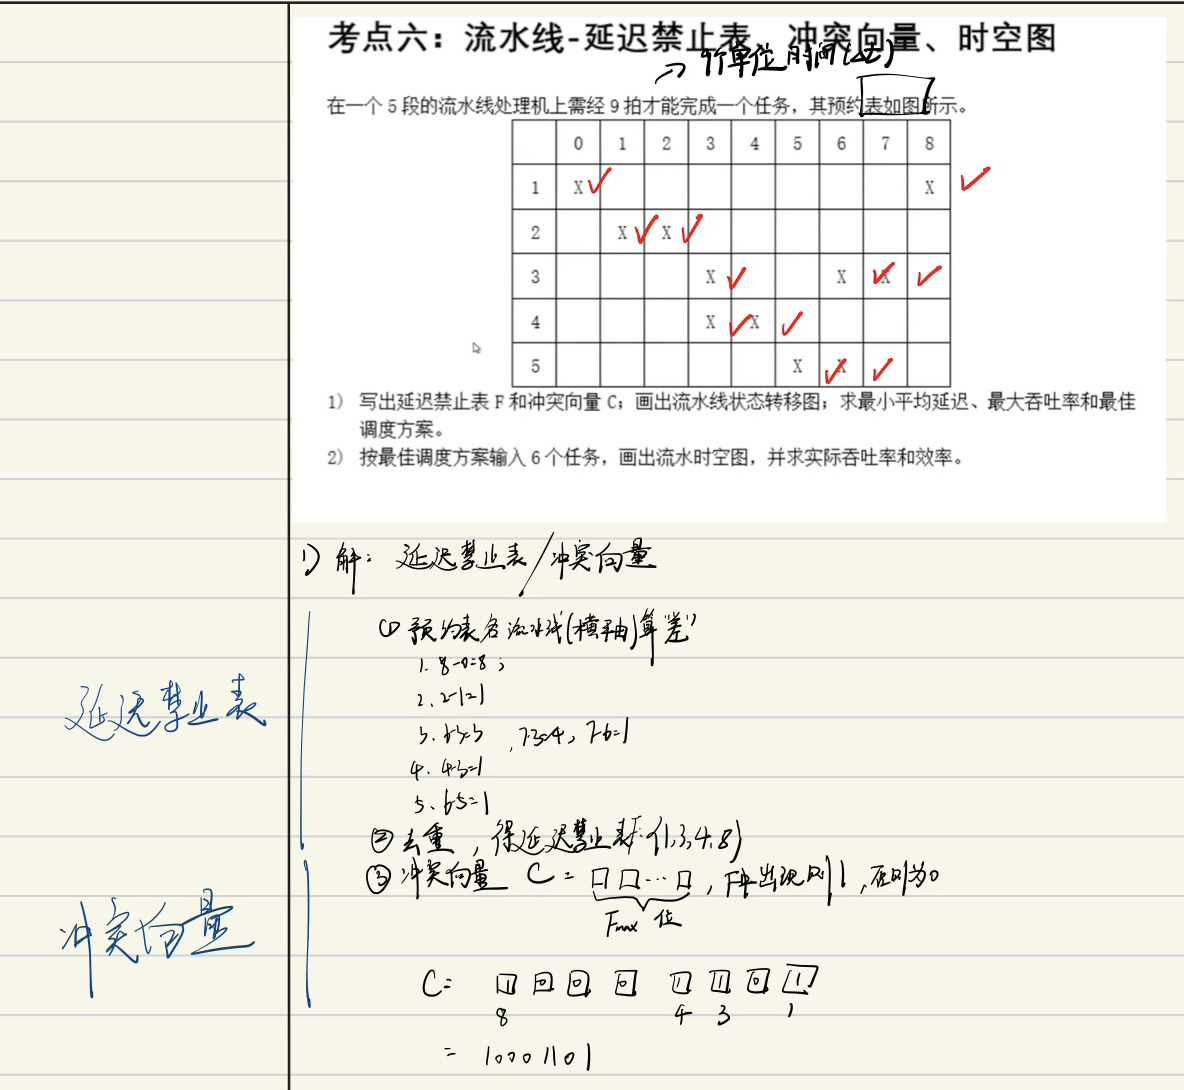 考点六：流水线-延迟禁止表、冲突向量、时空图
→ 9个单位时间(Δt)
在一个 5 段的流水线处理机上需经 9 拍才能完成一个任务，其预约表如图所示。
0 1 2 3 4 5 6 7 8
1 X X
2 X X
3 X X X
4 X X
5 X X
1） 写出延迟禁止表 F 和冲突向量 C；画出流水线状态转移图；求最小平均延迟、最大吞吐率和最佳
调度方案。
2） 按最佳调度方案输入 6 个任务，画出流水时空图，并求实际吞吐率和效率。
1) 解：延迟禁止表/冲突向量
① 预约表各流水线(横轴)算"差"
1. 8-0=8；
2. 2-1=1
3. 6-3=3，7-3=4，7-6=1
4. 4-3=1
5. 6-5=1
延迟禁止表
② 去重，得延迟禁止表F：(1,3,4,8)
③ 冲突向量 C = □□…□，F中出现则1，否则为0
Fmax 位
冲突向量
C= 1 0 0 0 1 1 0 1
8 4 3 1
= 10001101